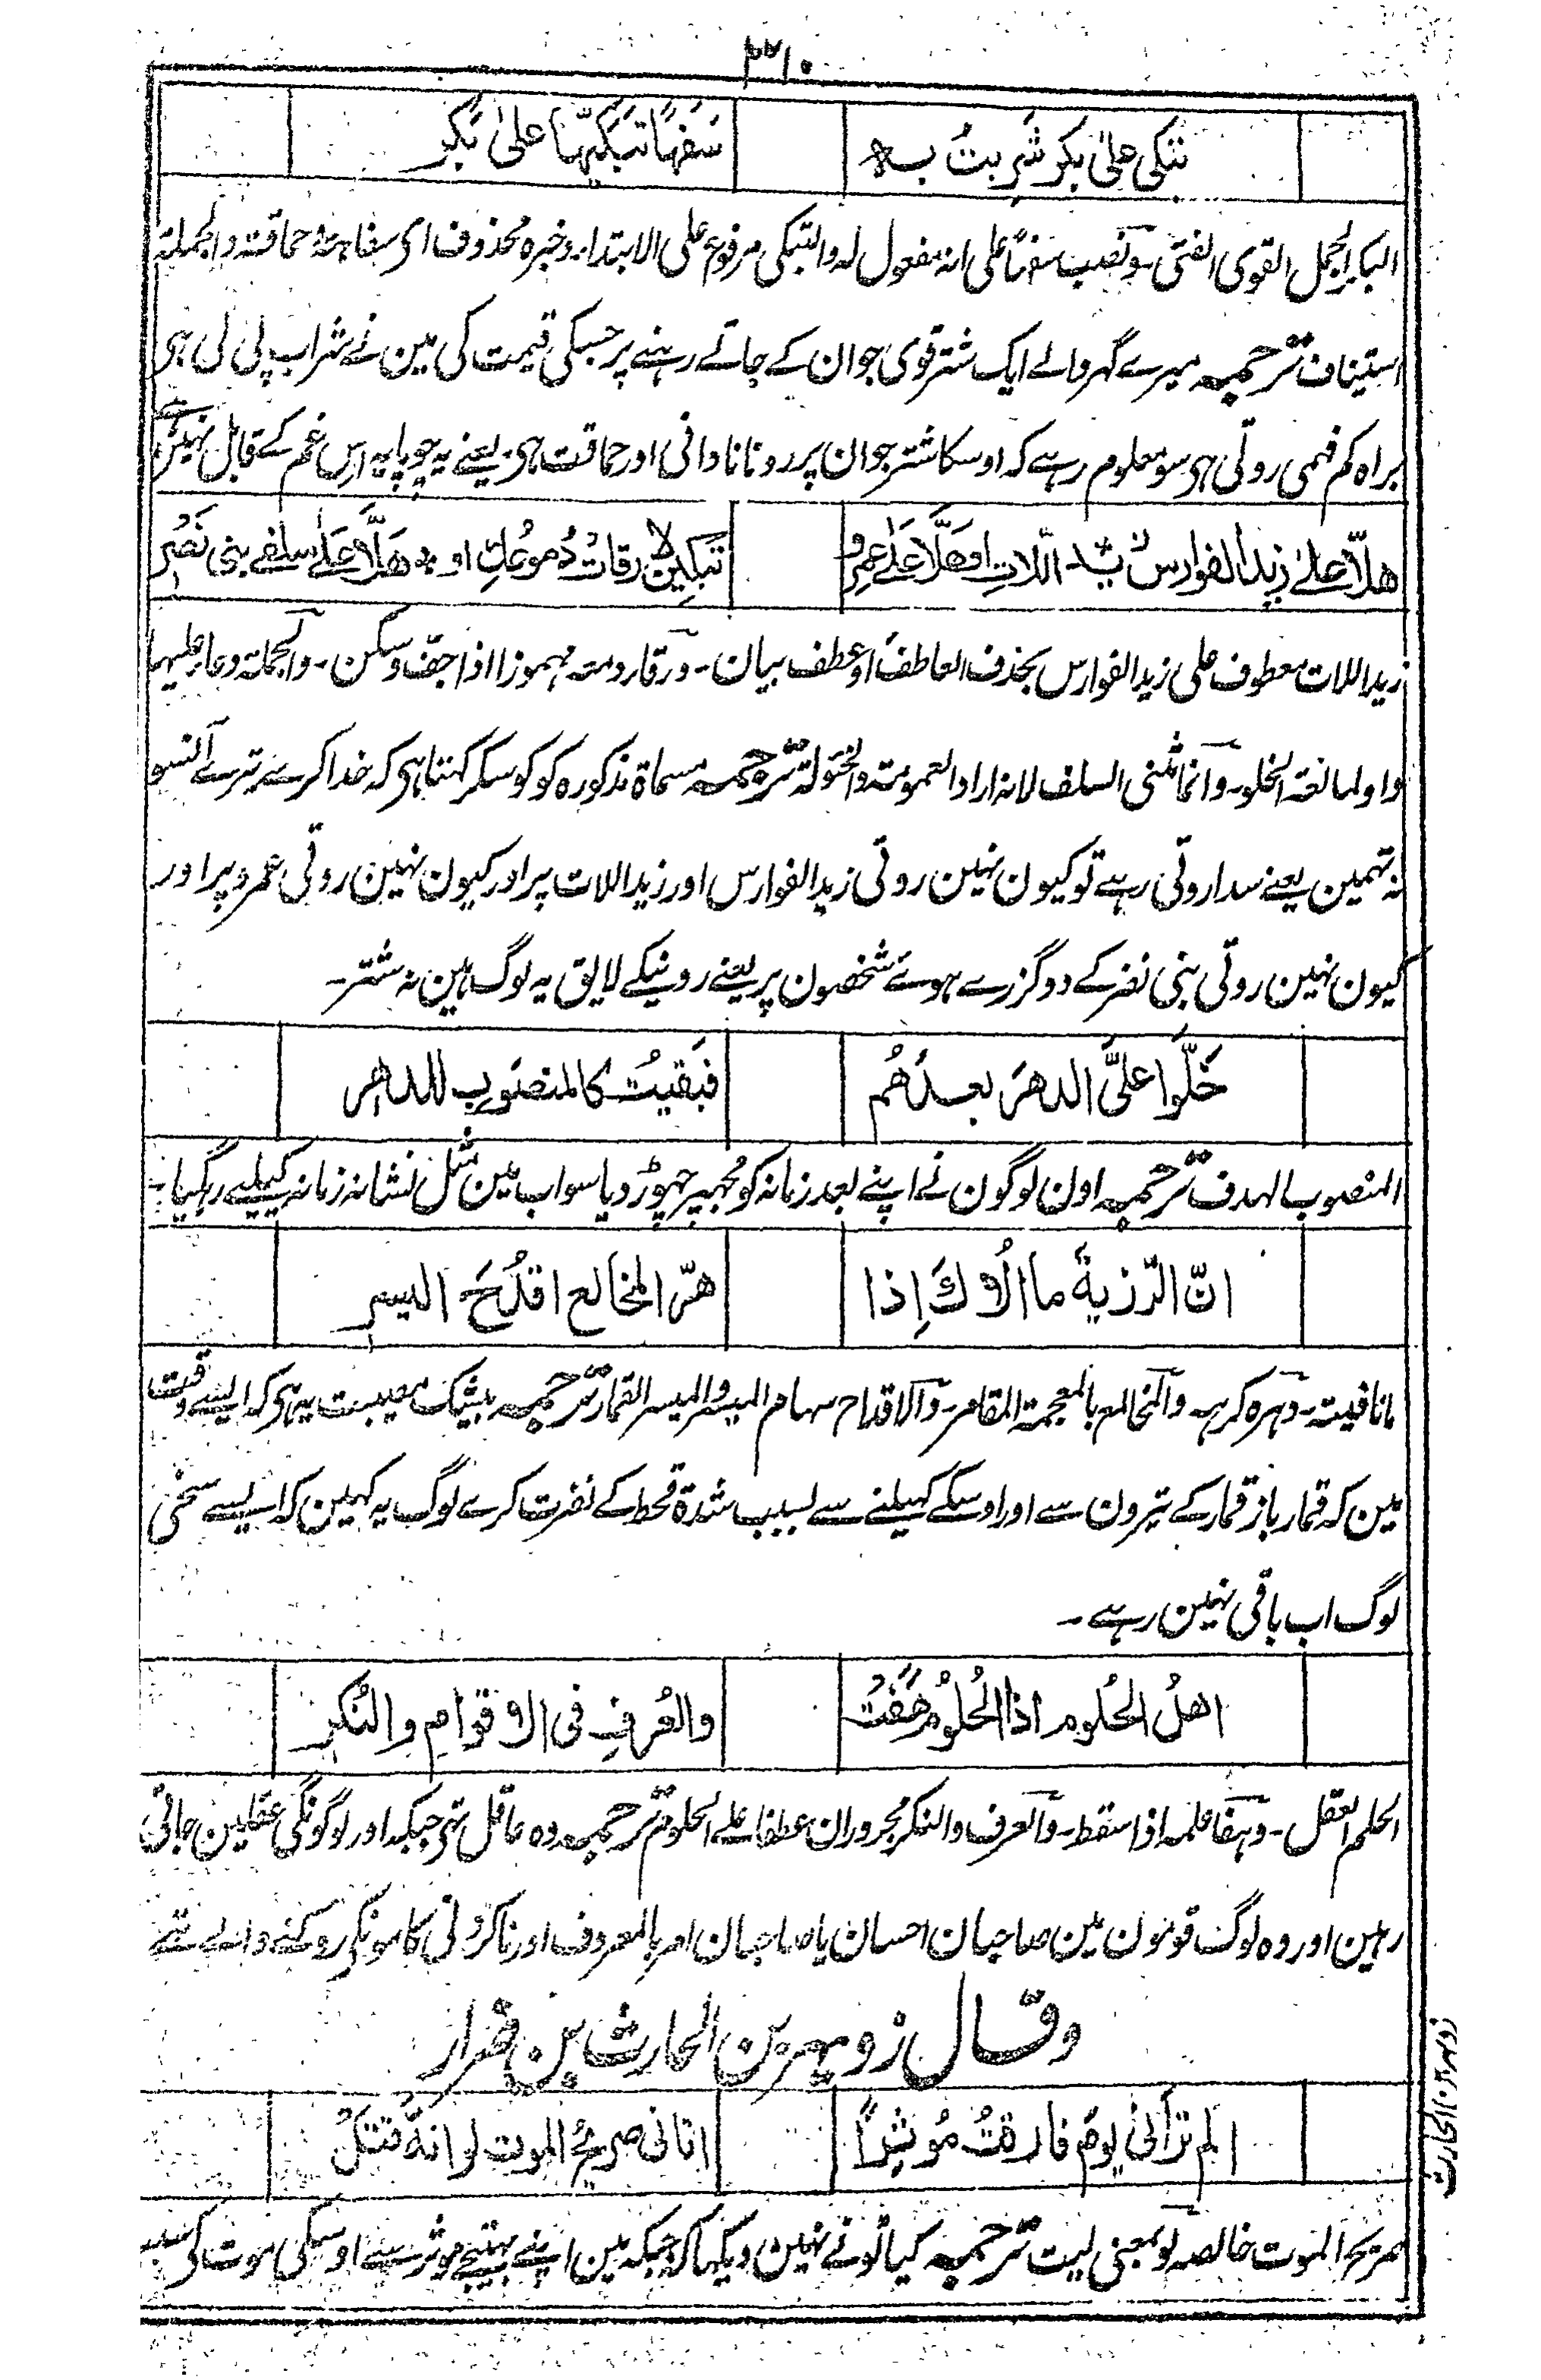 ٣١٠
تبکی علیٰ بکر شَربتُ بہ سَفَهًا تبکیّها علیٰ بَکر
البکر الجمل القوی الفتی۔ ونصب سفهًا علی انہ مفعول لہ والتبکی مرفوع علی الابتداء وخبرہ محذوف ای سفاہۃ وحماقتہ والجملۃ
استیناف ترجمہ میرے گہر والے ایک شتر قوی جوان کے جاتے رہنے پر جسکی قیمت کی مین نے شراب پی لی ہی
براہ کم فہمی روتی ہی سو معلوم رہے کہ اوسکا شتر جوان پر رونا نادانی اور حماقت ہی۔ یعنے یہ چوپایہ اِس غم کے قابل نہین ہے
هلّا علےٰ زید الفوارس زید اللات اوهلّا علےٰ عمرو تبکین لا رقات دُموعکِ او هَلَّا عَلےٰ سلفے بنی نَصْر
زید اللات معطوف علی زید الفوارس بحذف العاطف او عطف بیان۔ ورقا دمعہ مہموزا اذا جف وسکن۔ والجملۃ دعاء علیہا
واو لمانعۃ الخلو۔ وانما ثنی السلف لانہ اراد العمومۃ والخئولۃ ترجمہ مسماۃ مذکورہ کو کوسکر کہتا ہی کہ خدا کرے تیرے آنسو
نہ تہمین یعنے سدا روتی رہے تو کیون نہین روتی زید الفوارس اور زید اللات پر اور کیون نہین روتی عمرو پر اور
کیون نہین روتی بنی نضر کے دو گزرے ہوئے شخصون پر یعنے رونیکے لایق یہ لوگ ہین نہ شتر۔
خَلَّوا علیَّ الدهرَ بعدَهُم فبقیتُ کالمنصَوبِ للدهرِ
المنصوب الہدف ترجمہ اون لوگون نے اپنے بعد زمانہ کو مجہپر چہوڑ دیا سو اب مین مثل نشانہ زمانہ کیلیے رہگیا۔
انّ الرّزیةَ ما اُلاوكَ اِذا هرّ المخالع اقدُحَ الیسر
ما نافیتہ۔ وہرہ کرہہ۔ والمخالع بالمعجمۃ المقامر۔ والاقداح سہام المیسر والمیسر القمار ترجمہ بیشک مصیبت یہ ہی کہ ایسے وقت
مین کہ قمار باز قمار کے تیرون سے اور اوسکے کہیلنے سے بسبب شدۃ قحط کے نفرت کرے لوگ یہ کہین کہ ایسے سخی
لوگ اب باقی نہین رہے۔
اهلُ الحُلوم اذا الحُلومُ هَفَتْ والعُرفِ فی الاقوامِ والنُکرِ
الحلم العقل۔ وہفا حلمہ اذا سقط۔ والعرف والنکر مجروران عطفا علے الحلوم ترجمہ وہ عاقل تہی جبکہ اور لوگونکی عقلین جاتی
رہین اور وہ لوگ قومون مین صاحبان احسان یا صاحبان امر بالمعروف اور ناکردنی کامونکے روکنے والے تہے
وقال زویہر بن الحارث بن ضرار
زویہر بن الحارث
الم تر أنی یومَ فارقتُ مُوثِرًا اتانی صریحُ الموت لو انہُ قتَلْ
صریح الموت خالصہ لو بمعنی لیت ترجمہ کیا تونے نہین دیکہا کہ جبکہ مین اپنے بہتیجے موثر سے اوسکی موت کی سبب